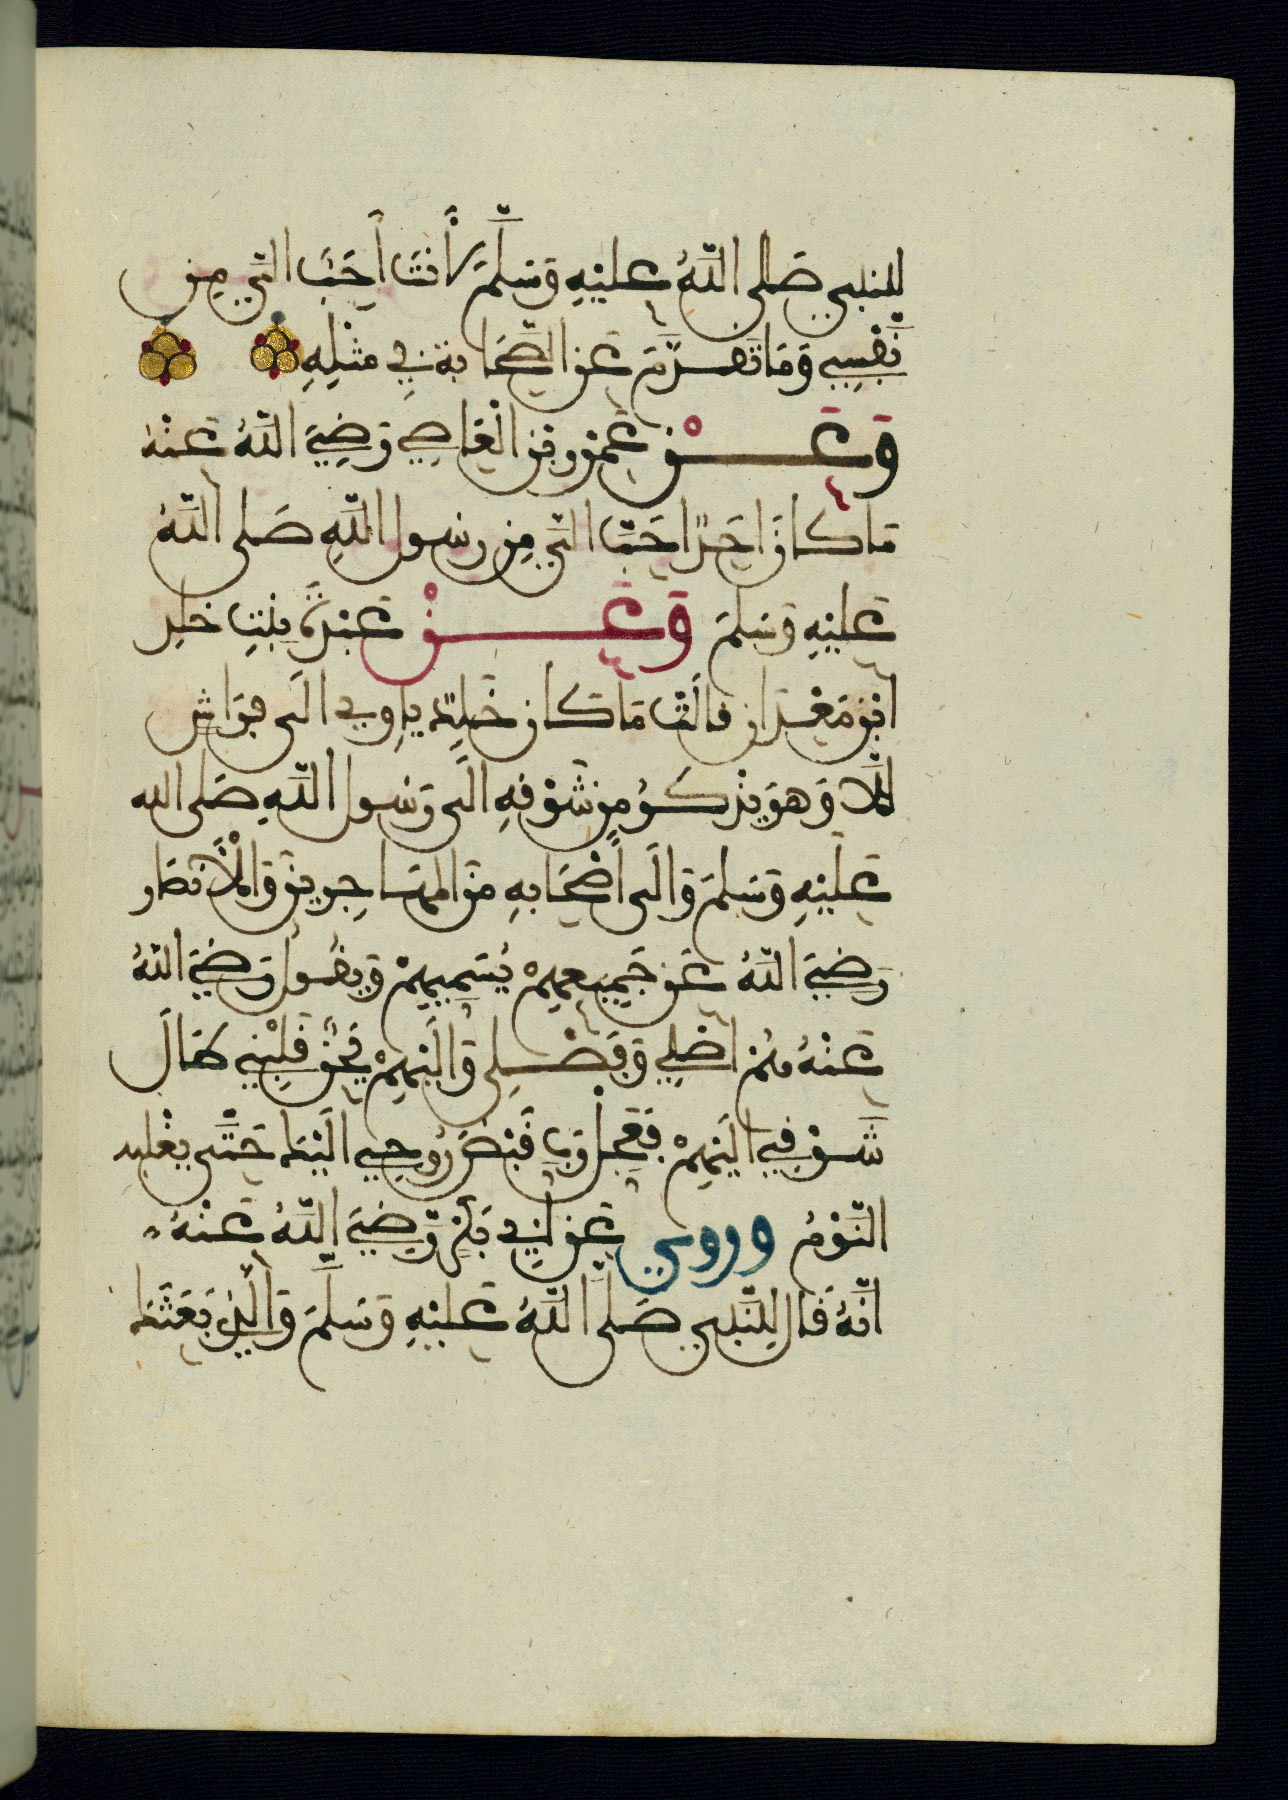 للنبي صَلى اللَّهُ عليْهِ وَسَلمَ لَأنتَ أحَبُّ الَيَّ مِن
نَّفْسِي وَمَا تَقدَّمَ عَنِ الصَّحَابةِ فِي مثْلِهِ
وَعَنْ عَمْرو بْنِ الْعَاصِي رَضِيَ اللَّهُ عَنْهُ
مَا كَانَ احَدٌ احَبَّ الَيَّ مِن رسُولِ اللَّهِ صَلى اللَّهُ
عَليْهِ وَسَلمَ وَعَنْ عَبْدَةَ بِنْتِ خلدِ
ابْنِ مَعْدَانَ قَالَتْ مَا كَانَ خَلِدٌ يَاوِي الَى فِرَاشٍ
الَّا وَهوَ يذْكُرُ مِن شَوْقِهِ الَى رَسُولِ اللَّهِ صَلى الله
عَلَيْهِ وَسَلمَ وَالَى أَصْحَابهِ مِنَ المُهَاجِرِينَ وَالْأَنصَار
رَضِيَ اللَّهُ عَن جَمِيعِهِمْ يُسَمِّيهِمْ وَيقُولُ رَضِيَ اللَّهُ
عَنْهُ هُمْ اصْلِي وَفَصْلِي وَالَيْهِمْ يَحِنُّ قَلْبِي طَالَ
شَوْقِي الَيْهِمْ فَعَجِّلْ رَبِّ قَبْضَ رُوحِي الَيْكَ حَتَّى يغْلبه
النَّوْمُ وروي عَنْ ابِي بَكْرٍ رَّضِيَ اللَّهُ عَنْهُ
انَّهُ قَالَ لِلنَّبِي صَلى اللَّهُ عَليْهِ وَسَلَّمَ وَالَّذِي بَعَثَكَ